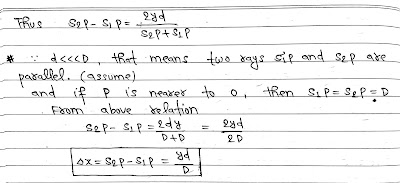 Thus S2P - S1P = 2yd / S2P + S1P
* ∵ d<<<D, that means two rays S1P and S2P are
parallel. (assume)
and if P is nearer to O, then S1P = S2P = D
From above relation
S2P - S1P = 2dy / D+D = 2yd / 2D
Δx = S2P - S1P = yd / D